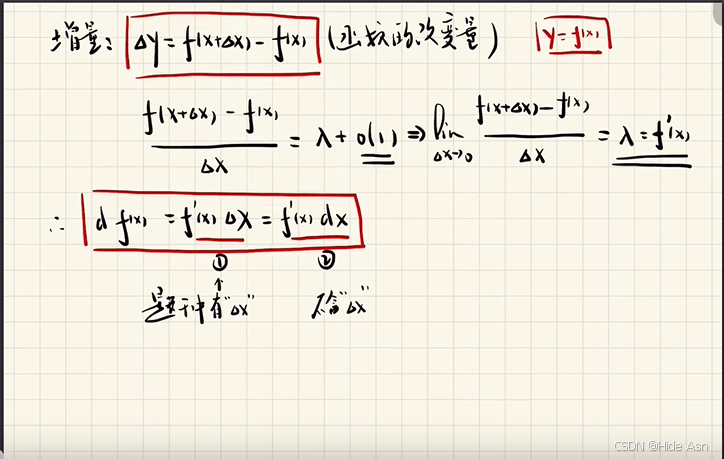 增量: Δy = f(x+Δx) - f(x) (函数的改变量) y = f(x)
f(x+Δx) - f(x) / Δx = λ + o(1) ⇒ lim Δx→0 f(x+Δx) - f(x) / Δx = λ = f'(x)
∴ d f(x) = f'(x) Δx = f'(x) dx
① ②
↑
题干中有"Δx" 不含"Δx"
CSDN @Hide Asn